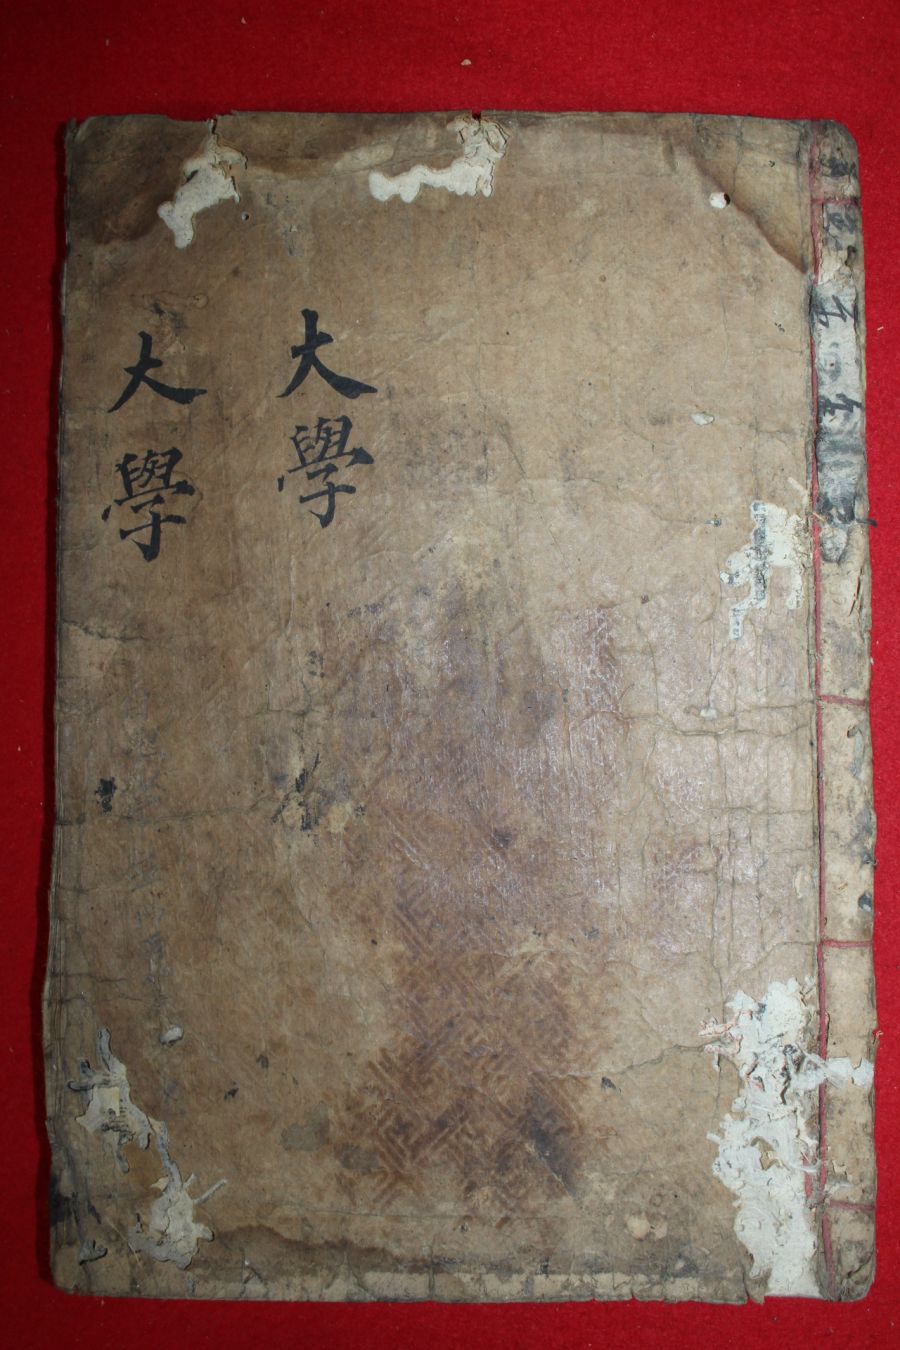 大學
大學